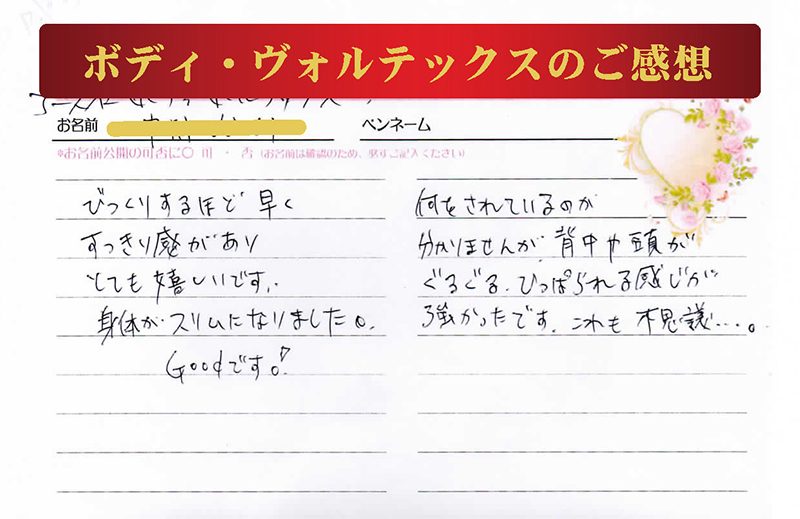 ボディ・ヴォルテックスのご感想
お名前
ペンネーム
※お名前公開の可否に○ 可 ・ 否 (お名前は確認のため、必ずご記入ください)
びっくりするほど 早く
すっきり感があり
とても嬉しいです。
身体が スリムになりました。
Goodです!
何をされているのか
分かりませんが、背中や頭が
ぐるぐる、ひっぱられる感じが
強かったです。これも 不思議…。